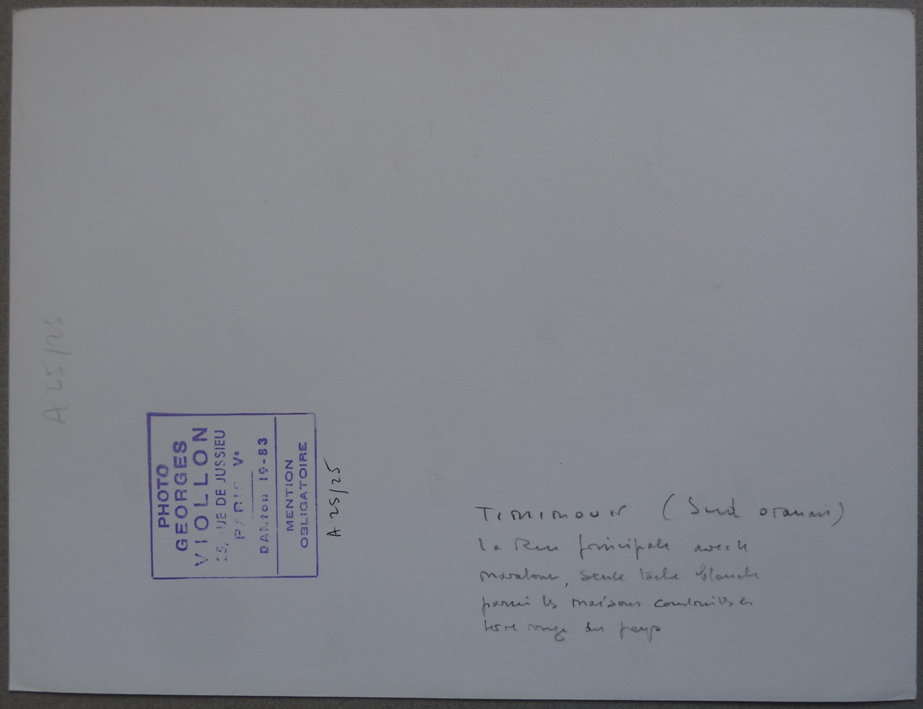 A 25/25
PHOTO
GEORGES
VIOLLON
RUE DE JUSSIEU
PARIS Ve
DANton 19-83
MENTION
OBLIGATOIRE
A 25/25
TIMIMOUN (Sud oranais)
la rue principale avec le
marabout, seule tache blanche
parmi les maisons construites en
terre rouge du pays